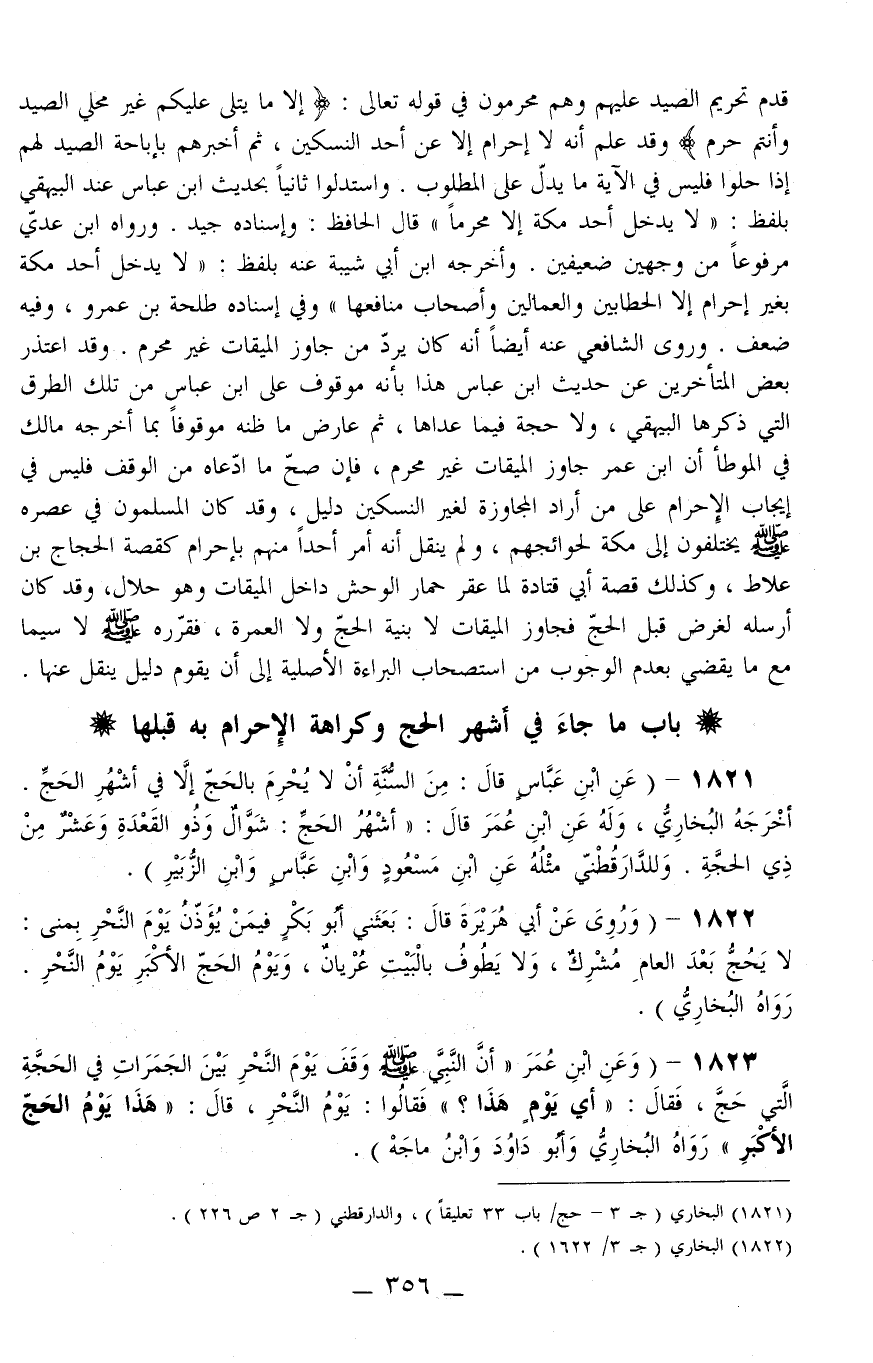 قدم تحريم الصيد عليهم وهم محرمون في قوله تعالى : ﴿ إلا ما يتلى عليكم غير محلي الصيد
وأنتم حرم ﴾ وقد علم أنه لا إحرام إلا عن أحد النسكين ، ثم أخبرهم بإباحة الصيد لهم
إذا حلوا فليس في الآية ما يدلّ على المطلوب . واستدلوا ثانياً بحديث ابن عباس عند البيهقي
بلفظ : « لا يدخل أحد مكة إلا محرماً » قال الحافظ : وإسناده جيد . ورواه ابن عديّ
مرفوعاً من وجهين ضعيفين . وأخرجه ابن أبي شيبة عنه بلفظ : « لا يدخل أحد مكة
بغير إحرام إلا الحطابين والعمالين وأصحاب منافعها » وفي إسناده طلحة بن عمرو ، وفيه
ضعف . وروى الشافعي عنه أيضاً أنه كان يردّ من جاوز الميقات غير محرم . وقد اعتذر
بعض المتأخرين عن حديث ابن عباس هذا بأنه موقوف على ابن عباس من تلك الطرق
التي ذكرها البيهقي ، ولا حجة فيما عداها ، ثم عارض ما ظنه موقوفاً بما أخرجه مالك
في الموطأ أن ابن عمر جاوز الميقات غير محرم ، فإن صحّ ما ادّعاه من الوقف فليس في
إيجاب الإحرام على من أراد المجاوزة لغير النسكين دليل ، وقد كان المسلمون في عصره
ﷺ يختلفون إلى مكة لحوائجهم ، ولم ينقل أنه أمر أحداً منهم بإحرام كقصة الحجاج بن
علاط ، وكذلك قصة أبي قتادة لما عقر حمار الوحش داخل الميقات وهو حلال، وقد كان
أرسله لغرض قبل الحجّ فجاوز الميقات لا بنية الحجّ ولا العمرة ، فقرّره ﷺ لا سيما
مع ما يقضي بعدم الوجوب من استصحاب البراءة الأصلية إلى أن يقوم دليل ينقل عنها .
✸ باب ما جاءَ في أشهر الحج وكراهة الإحرام به قبلها ✸
١٨٢١ – ( عَنِ ابْنِ عَبَّاسٍ قالَ : مِنَ السُّنَّةِ أنْ لا يُحْرِمَ بالحَجّ إلَّا في أشْهُرِ الحَجِّ .
أخْرَجَهُ البُخارِيُّ ، وَلَهُ عَنِ ابْنِ عُمَرَ قالَ : « أشْهُرُ الحَجِّ : شَوَّالٌ وَذُو القَعْدَةِ وَعَشْرٌ مِنْ
ذِي الحجَّةِ . وَللدَّارَقُطْنِيّ مثْلُهُ عَنِ ابْنِ مَسْعُودٍ وَابْنِ عَبَّاسٍ وَابْنِ الزُّبَيْرِ ) .
١٨٢٢ – ( وَرُوِىَ عَنْ أبي هُرَيْرَةَ قالَ : بَعَثَني أبُو بَكْرٍ فيمَنْ يُؤَذّنُ يَوْمَ النَّحْرِ بِمنى :
لا يَحُجُّ بَعْدَ العامِ مُشْرِكٌ ، وَلا يَطُوفُ بالْبَيْتِ عُرْيانٌ ، وَيَوْمُ الحَجّ الأكْبَرِ يَوْمُ النَّحْرِ .
رَوَاهُ البُخارِيُّ ) .
١٨٢٣ – ( وَعَنِ ابْنِ عُمَرَ « أنَّ النَّبِيَّ ﷺ وَقَفَ يَوْمَ النَّحْرِ بَيْنَ الجَمَرَاتِ في الحَجَّةِ
الَّتي حَجَّ ، فَقالَ : « أي يَوْمٍ هَذَا ؟ » فَقالُوا : يَوْمُ النَّحْرِ ، قالَ : « هَذَا يَوْمُ الحَجّ
الأكْبَرِ » رَوَاهُ البُخارِيُّ وَأبُو دَاوُدَ وَابْنُ ماجَهْ ) .
(١٨٢١) البخاري ( جـ ٣ – حج/ باب ٣٣ تعليقاً ) ، والدارقطني ( جـ ٢ ص ٢٢٦ ) .
(١٨٢٢) البخاري ( جـ ٣/ ١٦٢٢ ) .
_ ٣٥٦ _